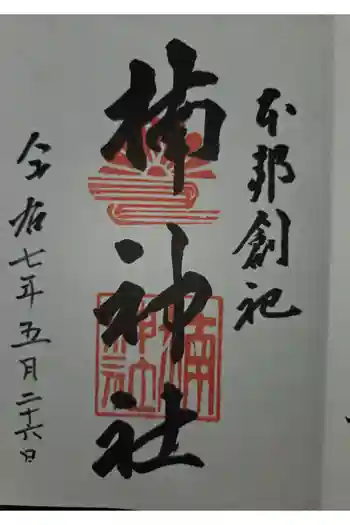 本邦創祀
楠神社
令和七年五月二十六日
楠神社